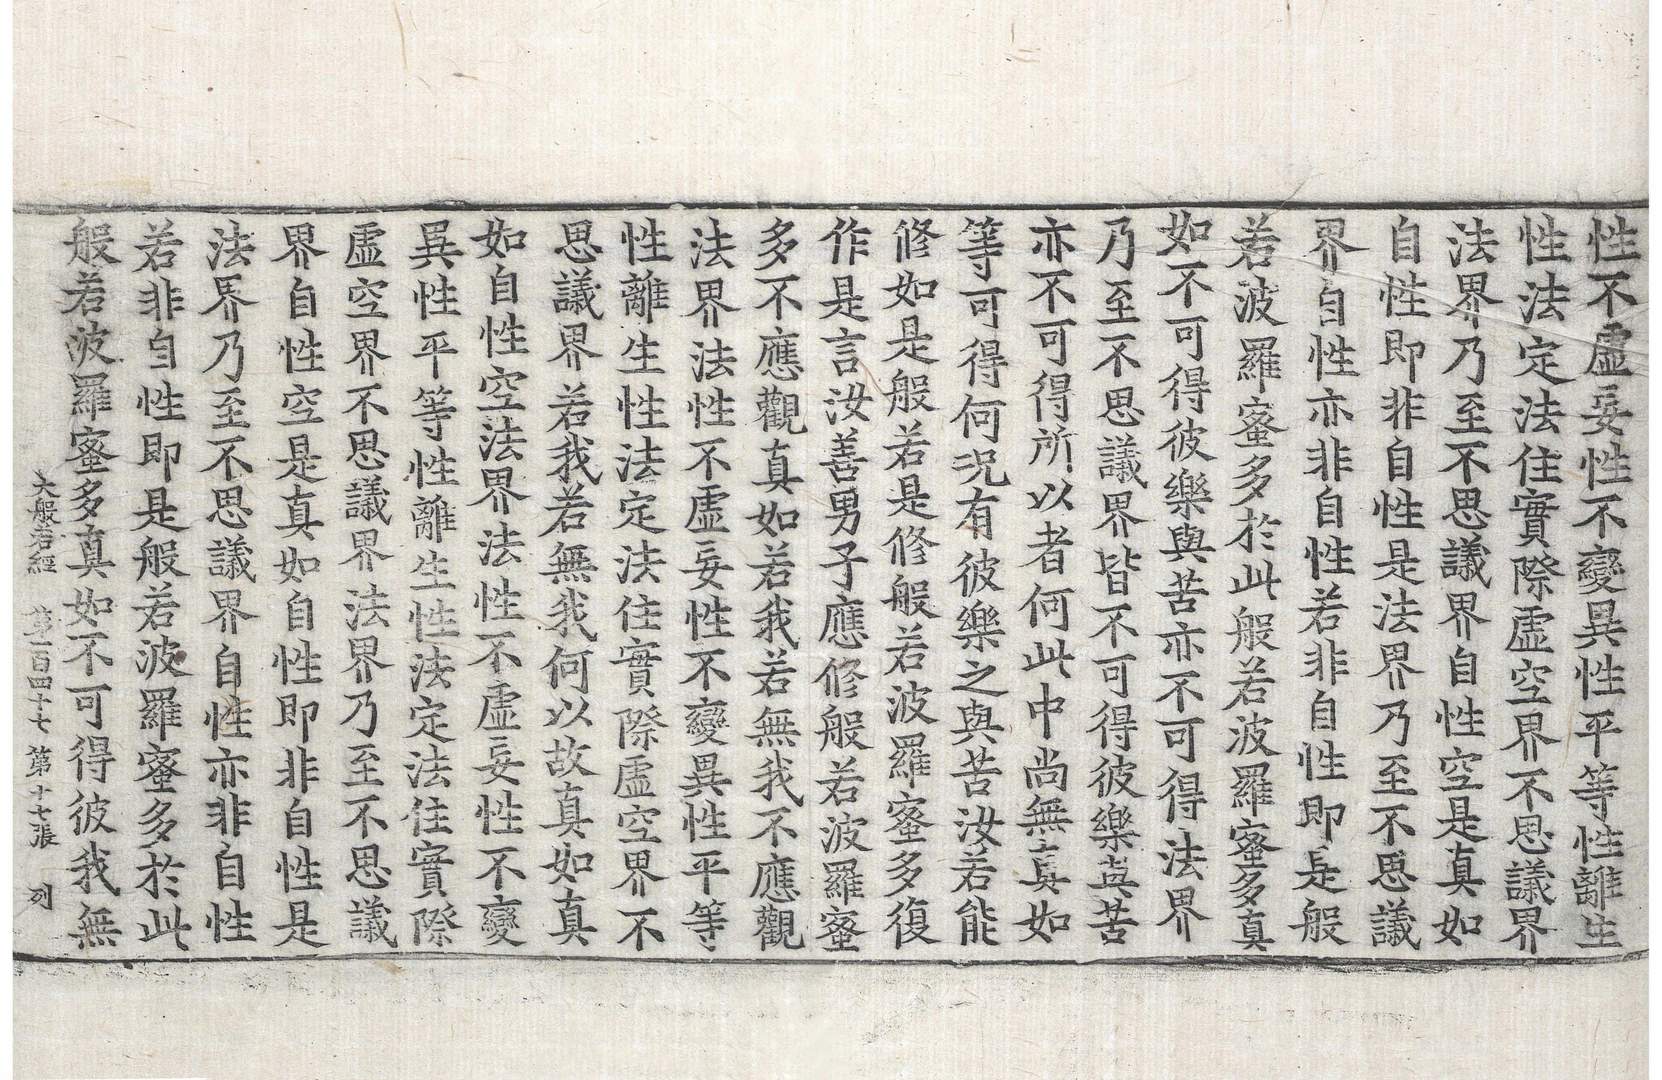 性不虛妄性不變異性平等性離生
性法定法住實際虛空界不思議界
法界乃至不思議界自性空是真如
自性即非自性是法界乃至不思議
界自性亦非自性若非自性即是般
若波羅蜜多於此般若波羅蜜多真
如不可得彼樂與苦亦不可得法界
乃至不思議界皆不可得彼樂與苦
亦不可得所以者何此中尚無真如
等可得何況有彼樂之與苦汝若能
修如是般若是修般若波羅蜜多復
作是言汝善男子應修般若波羅蜜
多不應觀真如若我若無我不應觀
法界法性不虛妄性不變異性平等
性離生性法定法住實際虛空界不
思議界若我若無我何以故真如真
如自性空法界法性不虛妄性不變
異性平等性離生性法定法住實際
虛空界不思議界法界乃至不思議
界自性空是真如自性即非自性是
法界乃至不思議界自性亦非自性
若非自性即是般若波羅蜜多於此
般若波羅蜜多真如不可得彼我無
大般若經 第一百四十七 第十七張 列